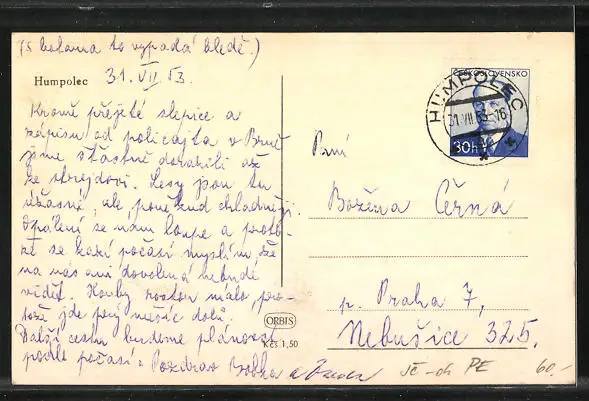 (S botama to vypadá bledě.)
Humpolec 31. VII 63.
Kromě přejeté slepice a
zápisu od policajta v Brně
jsme šťastně dorazili až
ke strejdovi. Lesy jsou tu
úžasné, ale poněkud chladněji.
Opálení se nám loupe a proto-
že se kazí počasí myslím, že
na nás ani dovolená nebude
vidět. Houby rostou málo, pro-
tože jde prý měsíc dolů.
Další cestu budeme plánovat
podle počasí. Pozdrav a
ČESKOSLOVENSKO
30h
HUMPOLEC
31.VII.63-16
Paní
Božena Černá
p. Praha 7,
Nebušice 325.
ORBIS
Kčs 1,50
PE
60.-